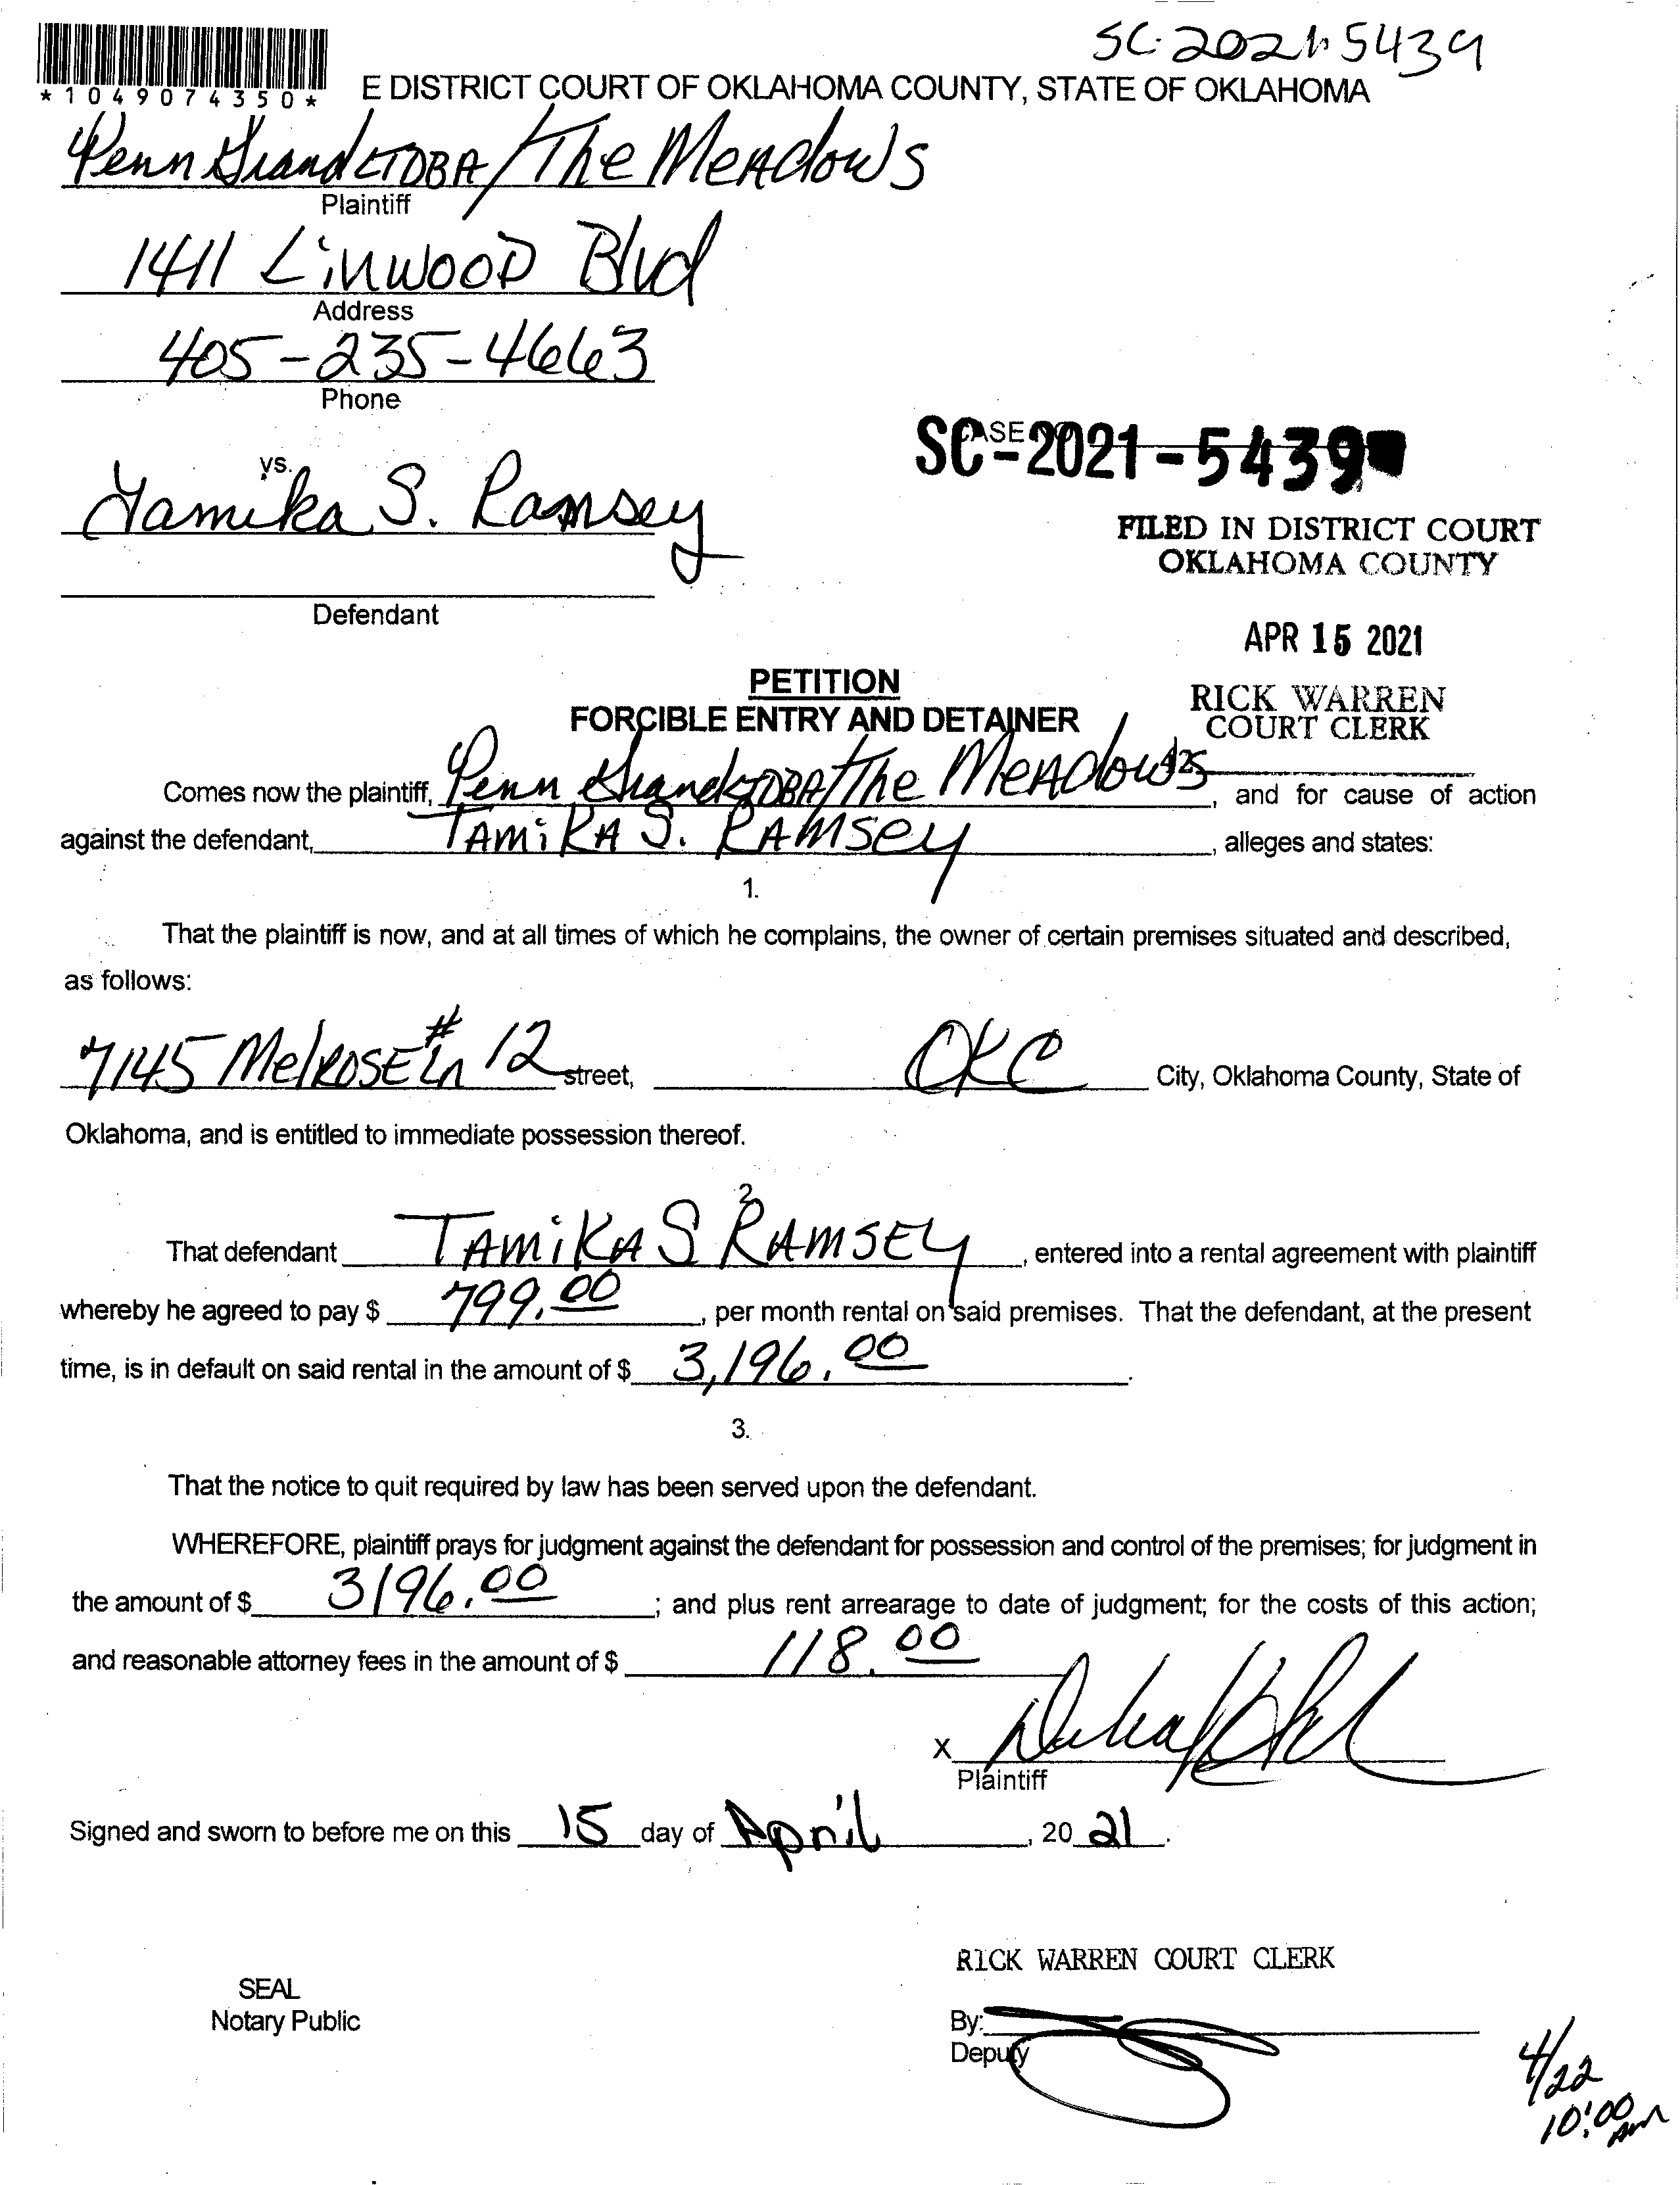 SC-2021-5439
*1049074350*
E DISTRICT COURT OF OKLAHOMA COUNTY, STATE OF OKLAHOMA
Penn Grand LTD DBA/The Meadows
Plaintiff
1411 Linwood Blvd
Address
405-235-4663
Phone
vs.
SC-2021-5439
Tamika S. Ramsey
FILED IN DISTRICT COURT
OKLAHOMA COUNTY
Defendant
APR 15 2021
PETITION
RICK WARREN
FORCIBLE ENTRY AND DETAINER
COURT CLERK
42
Comes now the plaintiff, Penn Grand LTD DBA/The Meadows, and for cause of action
against the defendant, Tamika S. Ramsey, alleges and states:
1.
That the plaintiff is now, and at all times of which he complains, the owner of certain premises situated and described,
as follows:
7145 Melrose Ln #12 street, OKC City, Oklahoma County, State of
Oklahoma, and is entitled to immediate possession thereof.
2.
That defendant Tamika S Ramsey, entered into a rental agreement with plaintiff
whereby he agreed to pay $ 799.00, per month rental on said premises. That the defendant, at the present
time, is in default on said rental in the amount of $ 3,196.00.
3.
That the notice to quit required by law has been served upon the defendant.
WHEREFORE, plaintiff prays for judgment against the defendant for possession and control of the premises; for judgment in
the amount of $ 3196.00; and plus rent arrearage to date of judgment; for the costs of this action;
and reasonable attorney fees in the amount of $ 118.00
X
Plaintiff
Signed and sworn to before me on this 15 day of April, 2021.
RICK WARREN COURT CLERK
SEAL
Notary Public
By:
Deputy
4/22
10:00 Am